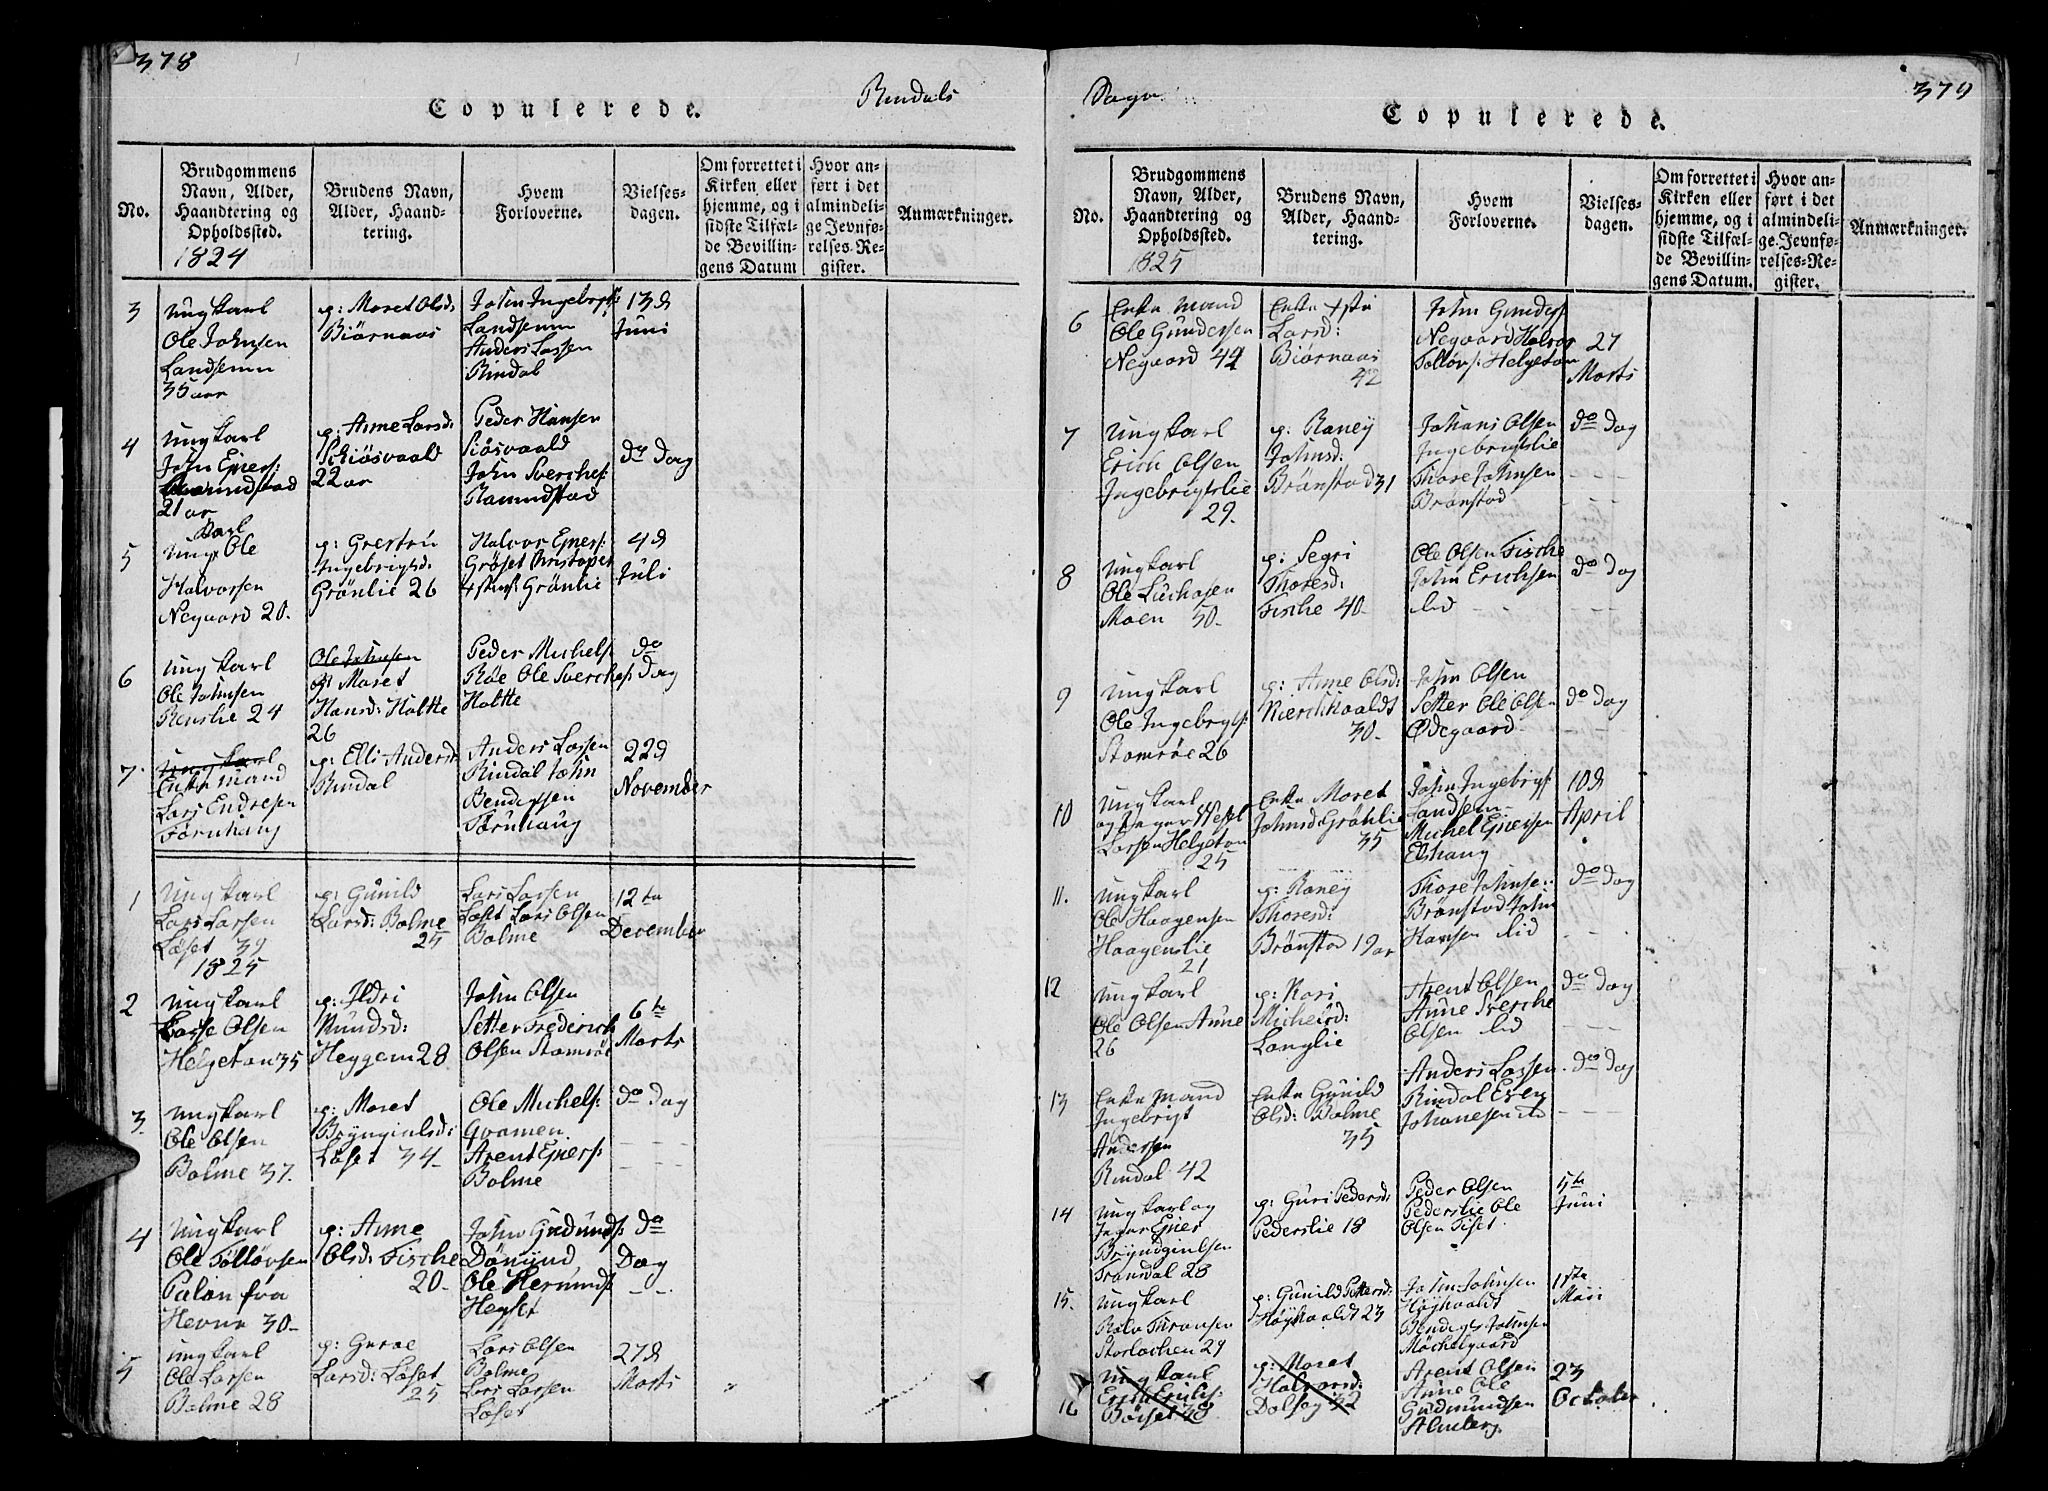 378
Copulerede.
Rindals
No.
Brudgommens Navn, Alder, Haandtering og Opholdssted.
1824
Brudens Navn, Alder, Haandtering.
Hvem Forloverne.
Vielsesdagen.
Om forrettet i Kirken eller hjemme, og i sidste Tilfælde Bevillingens Datum
Hvor anført i det almindelige Jevnførelses-Register.
Anmærkninger.
3
Ungkarl
Ole Johnsen
Landsemn
35 aar
p: Maret Olsd:
Biørnaas
John Ingebrigts:
Landsemn
Anders Larsen
Rindal
13d
Juni
4
Ungkarl
John Eners:
21 ar
p: Anne Larsd:
Schiøsvaald
22 ar
Peder Hansen
Siøsvaald
John Sverches:
Romundstad
do Dag
5
Ungkarl Ole
Halvorsen
Negaard 20.
p:
Ingebrigtsd:
Grønlie 26
Halvor Eners:
Grøset Christopher
Grønlie
4d
Juli
6
Ungkarl
Ole Johnsen
Renslie 24
Ole Johnsen
p: Maret
Hansd: Holtte
26
Peder Michels:
Røe Ole Sverches:
Holtte
do
Dag
7.
Ungkarl
Enke Mand
Lars Endresen
Førnhaug
p: Elli Andersd:
Rindal
Anders Larsen
Rindal John
Bendessen
Tørnhaug
22d
November
1
Ungkarl
Lars Larsen
Løset 39
1825
p: Gunild
Larsd: Bolme
25
Lars Larsen
Løset Lars Olsen
Bolme
12te
December
2
Ungkarl
Lasse Olsen
Helgetan 35
p: Ildri
Knudsd:
Heggem 28
John Olsen
Setter Frederich
Olsen Stomrøe
6te
Marts
3.
Ungkarl
Ole Olsen
Bolme 37.
p: Maret
Bryngielsd:
Løset 34.
Ole Michels:
Qvamen
Arent Eners:
Bolme
do Dag
4
Ungkarl
Ole Tølløvsen
Paløn fra
Hevne 30
p: Anne
Olsd: Fische
20.
John Gudmunds:
Dønnind
Ole Hermunds
Heggset
do
Dag
5
Ungkarl
Ole Larsen
Bolme 28
p: Guroe
Larsd: Løset
25
Lars Olsen
Bolme
Lars Larsen
Løset
27d
Marts
Sogn
Copulerede.
379
No.
Brudgommens Navn, Alder, Haandtering og Opholdssted.
1825
Brudens Navn, Alder, Haandtering.
Hvem Forloverne.
Vielsesdagen.
Om forrettet i Kirken eller hjemme, og i sidste Tilfælde Bevillingens Datum.
Hvor anført i det almindelige Jevnførelses-Register.
Anmærkninger.
6
Enke Mand
Ole Gundersen
Negaard 44
Enke
Larsd:
Biørnaas
42
John Gunders:
Negaard Halvor
Tølløvs: Helgetan
27
Marts
7
Ungkarl
Erich Olsen
Ingebrigtslie
29.
p: Raney
Johnsd:
Brønstad 31
Johans Olsen
Ingebrigtslie
Thore Johnsen
Brønstad
do Dag
8
Ungkarl
Ole
Moen 50
p: Segri
Thoresd:
Fische 40
Ole Olsen Fische
John Erichsen
lid
do Dag
9
Ungkarl
Ole Ingebrigts:
Stomrøe 26
p: Anne Olsd:
30
John Olsen
Setter Ole Olsen
Ødegaard
do Dag
10
Ungkarl
og Jæger Wesel
Larsen Helgeton
25
Enke Maret
Johnsd: Grønlie
35
John Ingebrigts:
Landsem
Michel Enersen
Elshaug
10d
April
11.
Ungkarl
Ole Haagensen
Haagenslie
21
p: Raney
Thoresd:
Brønstad 19 ar
Thore Johnse:
Brønstad John
Hansen lid
do Dag
12
Ungkarl
Ole Olsen Aune
26
p: Kari
Michelsd:
Langlie
Arent Olsen
Aune Sverche
Olsen lid
do Dag
13
Enke Mand
Ingebrigt
Andersen
Rindal 42
Enke Gunild
Olsd: Bolme
35
Anders Larsen
Rindal Even
Johanesen
do Dag
14
Ungkarl og
Jæger Ener
Bryndgielsen
Trøndal 28
p: Guri Pedersd:
Pederslie 18
Peder Olsen
Pederslie Ole
Olsen Tiset
5te
Juni
15.
Ungkarl
Rolv Thronsen
Storlochen 29
p: Gunild Pettersd:
Høykvaldt 23
John Johnsen
Høykvaldt
Bendiger Johnsen
Møchelgaard
1ste
Mai
16
Ungkarl
Børset 48
p: Maret
Halvorsd:
Dalseg 32
Arent Olsen
Aune Ole
Gudmundsen
Almberg.
23
October